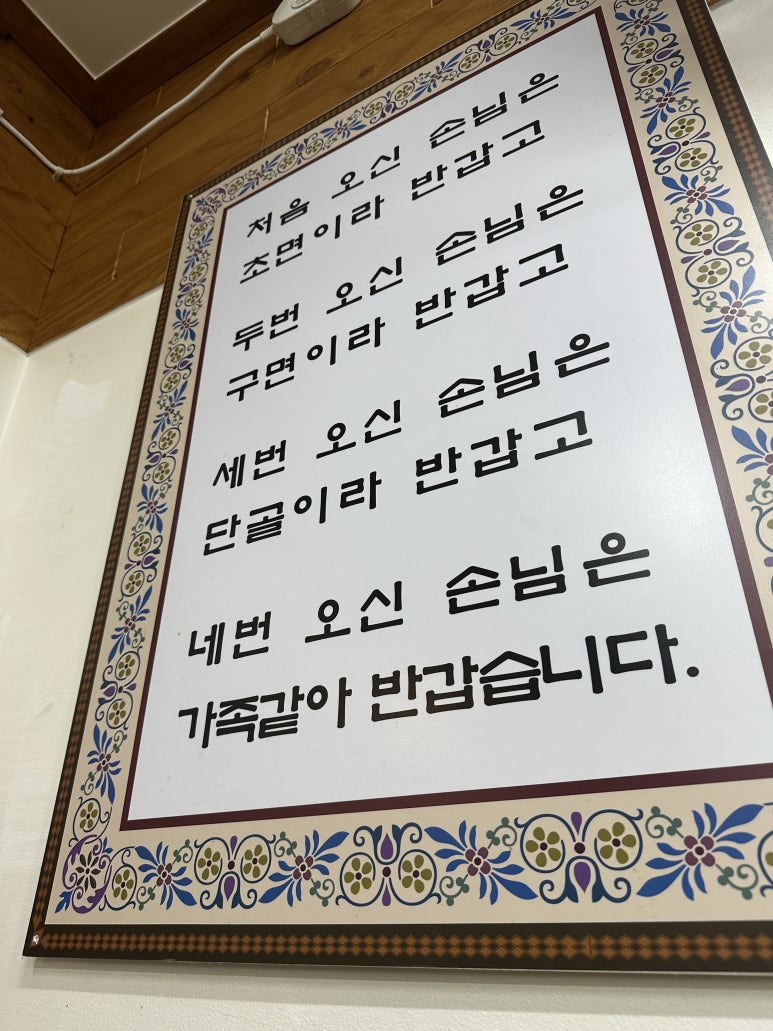 처음 오신 손님은
초면이라 반갑고
두번 오신 손님은
구면이라 반갑고
세번 오신 손님은
단골이라 반갑고
네번 오신 손님은
가족같아 반갑습니다.